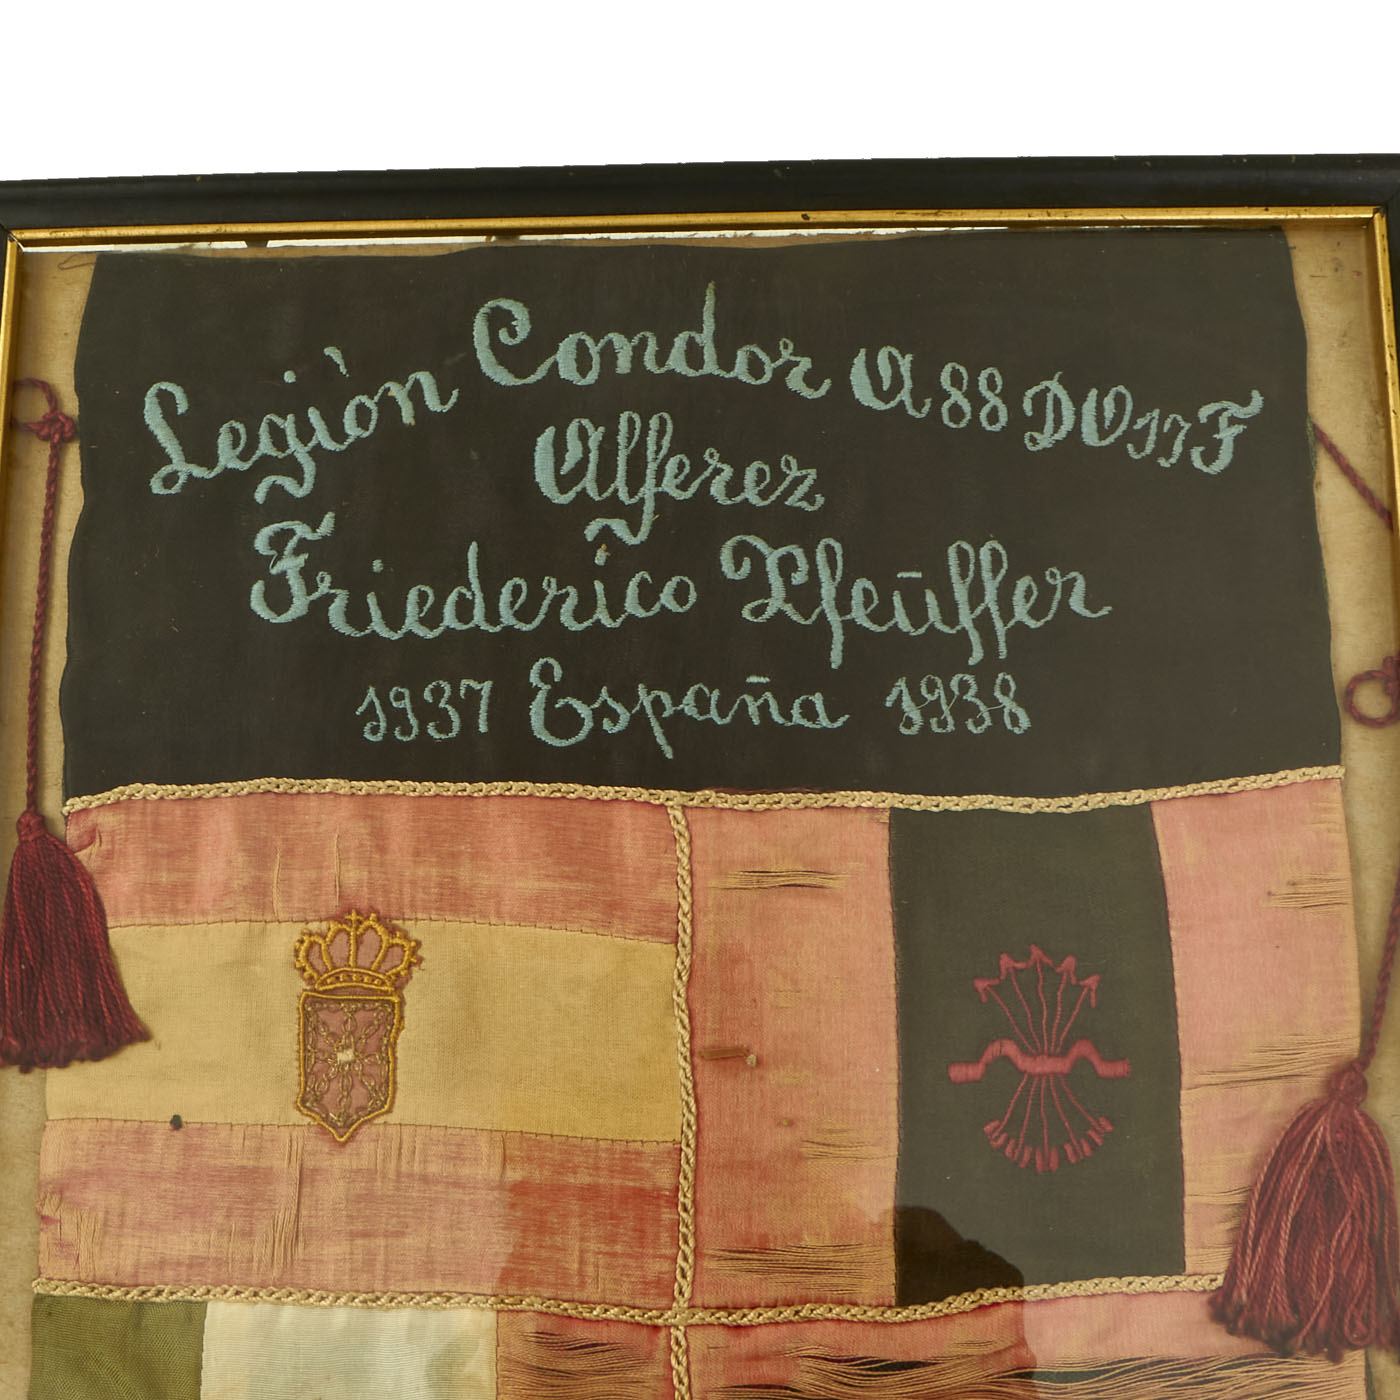 Legiòn Condor A88 DO 17 F
Alferez
Friederico Pfeūffer
1937 España 1938